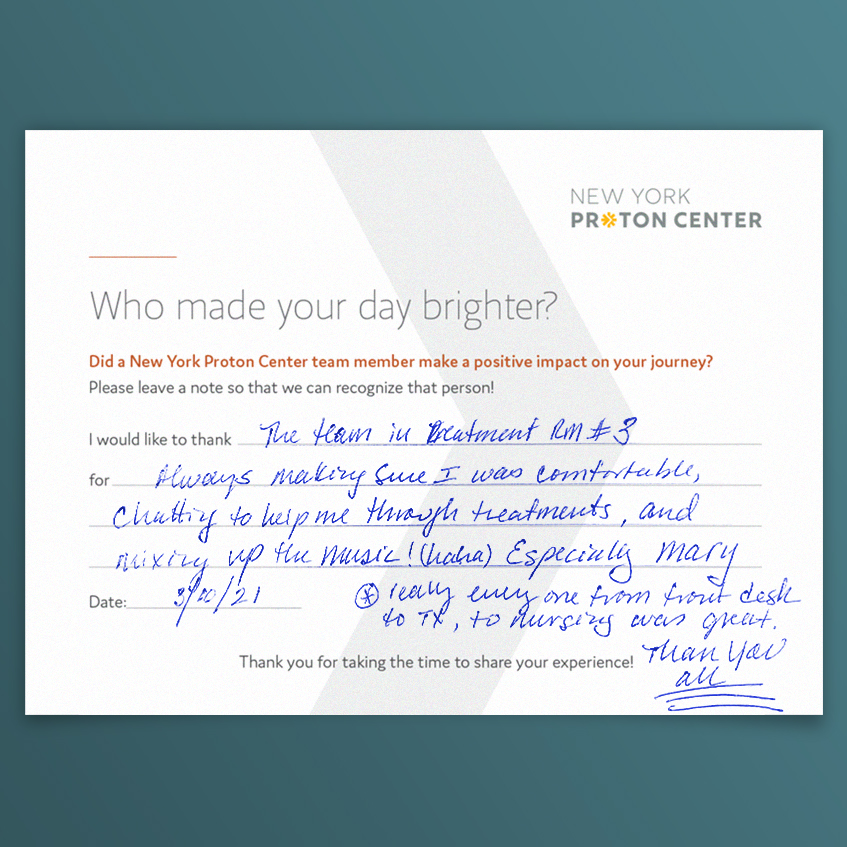 NEW YORK
PROTON CENTER
Who made your day brighter?
Did a New York Proton Center team member make a positive impact on your journey?
Please leave a note so that we can recognize that person!
I would like to thank The team in Treatment RM # 3
for Always making sure I was comfortable,
Chatting to help me through treatments, and
mixing up the music! (haha) Especially Mary
Date: 3/10/21
* really every one from front desk
to TX, to nursing was great.
Thank you for taking the time to share your experience! Thank You
all